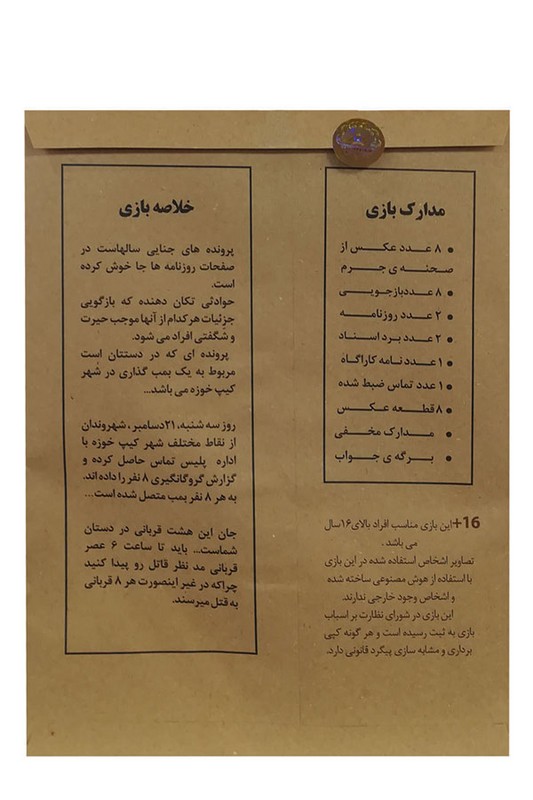 مدارک بازی
● ۸ عدد عکس از
صحنه ی جرم
● ۸ عدد بازجویی
● ۲ عدد روزنامه
● ۲ عدد برد اسناد
● ۱ عدد نامه کارآگاه
● ۱ عدد تماس ضبط شده
● ۸ قطعه عکس
● مدارک مخفی
● برگه ی جواب
16+ این بازی مناسب افراد بالای ۱۶ سال
می باشد.
تصاویر اشخاص استفاده شده در این بازی
با استفاده از هوش مصنوعی ساخته شده
و اشخاص وجود خارجی ندارند.
این بازی در شورای نظارت بر اسباب
بازی به ثبت رسیده است و هر گونه کپی
برداری و مشابه سازی پیگرد قانونی دارد.
خلاصه بازی
پرونده های جنایی سالهاست در
صفحات روزنامه ها جا خوش کرده
است.
حوادثی تکان دهنده که بازگویی
جزئیات هر کدام از آنها موجب حیرت
و شگفتی افراد می شود.
پرونده ای که در دستتان است
مربوط به یک بمب گذاری در شهر
کیپ خوزه می باشد...
روز سه شنبه، ۲۱ دسامبر، شهروندان
از نقاط مختلف شهر کیپ خوزه با
اداره پلیس تماس حاصل کرده و
گزارش گروگانگیری ۸ نفر را داده اند.
به هر ۸ نفر بمب متصل شده است...
جان این هشت قربانی در دستان
شماست... باید تا ساعت ۶ عصر
قربانی مد نظر قاتل رو پیدا کنید
چراکه در غیر اینصورت هر ۸ قربانی
به قتل میرسند.